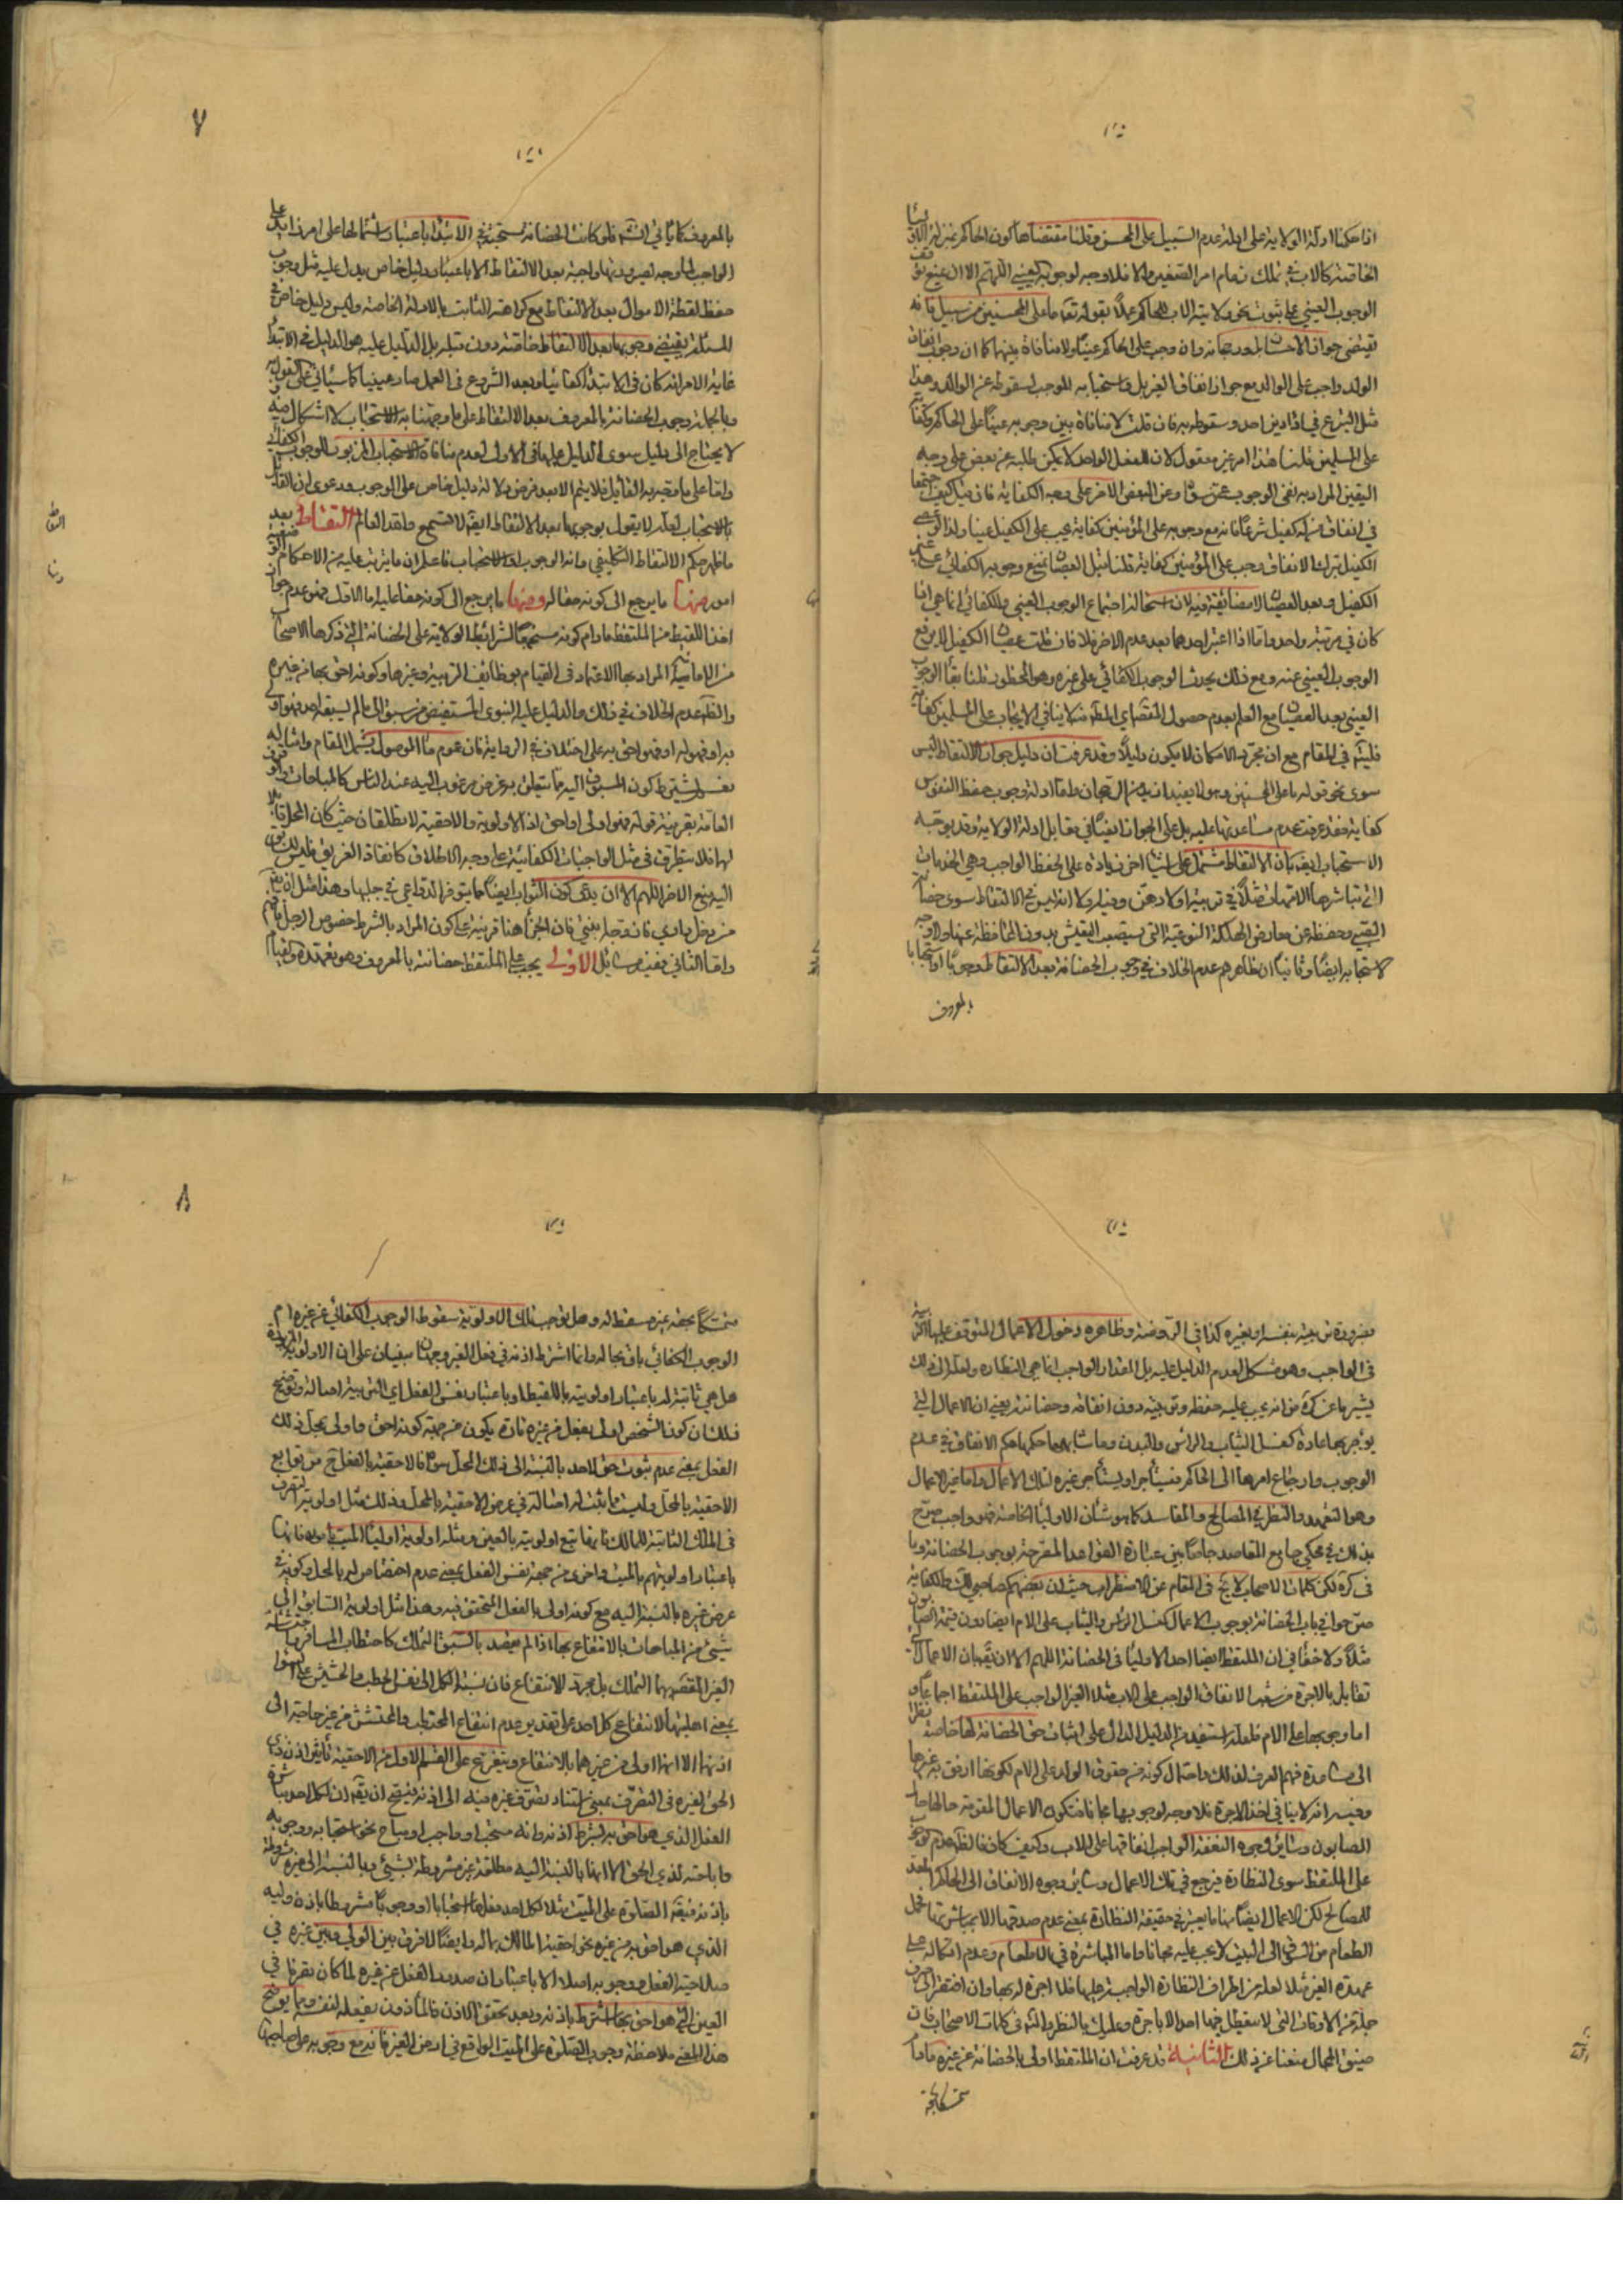 اذا حكمنا ادلة الولاية على ابلد عدم السبيل على المحسن وقلنا مقتضاها كون الحاكم
الخاصة كالاب في تملك زمام امر الصغير والا فلا وجه لوجوبه العيني اللهم الا ان يمنع
الوجوب العيني على ثبوت نحو ولاية الاب للحاكم عملا بقوله تعالى ما على المحسنين من سبيل فانه
يقتضي جواز الاحسان ورجحانه وان وجب على الحاكم عينا ولا منافاة بينهما كما ان وجوب انفاق
الولد واجب على الوالد مع جواز انفاق الغير بل واستحبابه الموجب لسقوطه عن الوالد وهذا
مثل التبرع في اداء دين احد وسقوطه به فان قلت لا منافاة بين وجوبه عينا على الحاكم وكفاية
على المسلمين قلنا هذا امر غير معقول لان الفعل الواحد لا يمكن طلبه عن بعض على وجه
اليقين المراد به نفي الوجوب عن سواه وعن البعض الاخر على وجه الكفاية فان قلت كيف
في انفاق من له كفيل شرعا فانه مع وجوبه على المؤمنين كفاية يجب على الكفيل عينا ولذا لو عصى
الكفيل بترك الانفاق وجب على المؤمنين كفاية قلنا قبل العصيان نمنع وجوبه الكفائي على غير
الكفيل وبعد العصيان لا مضايقة فيه لان استحالة اجتماع الوجوب العيني والكفائي انما هي اذا
كان في مرتبة واحدة واما اذا اعتبر احدهما بعد عدم الاخر فلا فان قلت عصيان الكفيل لا يرفع
الوجوب العيني عنه ومع ذلك يحدث الوجوب الكفائي على غيره وهو المحظور قلنا بقاء الوجوب
العيني بعد العصيان مع العلم بعدم حصول المقتضى لا ينافي الايجاب على المسلمين كفاية
فليكن في المقام مع ان مجرد الامكان لا يكون دليلا وقد عرفت ان دليل جواز الالتقاط ليس
سوى نحو قوله ما على المحسنين وهو لا يفيد ازيد من الرجحان واما ادلة وجوب حفظ النفوس
كفاية فقد عرفت عدم مساعدتها عليه بل على الجواز ايضا في مقابل ادلة الولاية وقد يوجه
الاستحباب ايضا بان الالتقاط مشتمل على اشياء اخر زيادة على الحفظ الواجب وهي الخدمات
التي تباشرها الامهات مثلا في تربية اولادهن وفيه اولا انه ليس في الالتقاط سوى حضانة
الصبي وحفظه عن معارض الهلكة النوعية التي يستصعب العيش بدون المحافظة عنها ولا وجه
لاستحبابه ايضا وثانيا ان ظاهرهم عدم الخلاف في وجوب الحضانة بعد الالتقاط وجوبا او استحبابا
بالمعروف
٧
بالمعروف كما ياتي انشاء فلو كانت الحضانة مستحبة في الابتداء باعتبار اشتمالها على امر زايد على
الواجب لا وجه لصيرورتها واجبة بعد الالتقاط الا باعتبار دليل خاص يدل عليه مثل وجوب
حفظ لقطة الاموال بعد الالتقاط مع كراهته الثابت بالادلة الخاصة وليس دليل خاص في
المسئلة يقتضي وجوبها بعد الالتقاط خاصة دون قبله بل الدليل عليه هو الدليل في الابتداء
غاية الامر انه كان في الابتداء كفائيا وبعد الشروع في العمل صار عينيا كما سيأتي على القول به
وبالجملة وجوب الحضانة بالمعروف بعد الالتقاط على ما وجهنا به الاستحباب لا اشكال فيه
لا يحتاج الى دليل سوى الدليل عليها في الاول لعدم منافاة الاستحباب المزبور للوجوب الكفائي
واما على ما وجه به القائل فلا يتم الا بعد فرض دلالة دليل خاص على الوجوب ودعوى ان القائل
بالاستحباب لعله لا يقول بوجوبها بعد الالتقاط ايضا لا تسمع واقد العالم التقاط بعد
ما ظهر حكم الالتقاط التكليفي وانه الوجوب او الاستحباب فاعلم ان ما يترتب عليه من الاحكام
امور منها ما يرجع الى كونه حقا له ومنها ما يرجع الى كونه حقا عليه اما الاول فهو عدم جواز
اخذ اللقيط من الملتقط ما دام كونه مستجمعا لشرائط الولاية على الحضانة التي ذكرها الاصحاب
من الامانة المراد بها الاعتماد في القيام بوظائف التربية وغيرها وكونه احق بها من غيره
والظاهر عدم الخلاف في ذلك والدليل عليه النبوي المستفيض من سبق الى ما لم يسبقه احد فهو اولى
به او فهو له او فهو احق به على اختلاف في الرواية فان عموم ما الموصول يشمل المقام وامثاله
نعم يشترط كون المسبوق اليه مما يتعلق به غرض مرغوب اليه عند الناس كالمباحات
العامة بقرينة قوله فهو اولى او احق اذ الاولوية والاحقية لا تطلقان حيث كان المحل قابلا
لها فلا يتطرق في مثل الواجبات الكفائية على وجه الاطلاق كانقاذ الغريق
اليه منع الاخر اللهم الا ان يدعى كون الثواب ايضا مما يتوفر الدواعي في جلبها وهذا مثل ان يقال
من دخل داري فان وجد بغيتي فان الجزاء هنا قرينة على كون المراد بالشرط خصوص الرجل
واما الثاني ففيه مسائل الاولى يجب على الملتقط حضانته بالمعروف وهو تعهده والقيام
التقاط
بضرورة تربيته بنفسه او بغيره كذا في الروضة وظاهره دخول الاعمال المتوقف عليها التربية
في الواجب وهو مشكل لعدم الدليل عليه بل المقدار الواجب انما هي النظارة ولعله الى ذلك
يشير ما عن كرة من انه يجب عليه حفظه وتربيته دون انفاقه وحضانته يعني ان الاعمال التي
يؤجر بها عادة كغسل الثياب والراس والبدن وما شابهها حكمها حكم الانفاق في عدم
الوجوب وارجاع امرها الى الحاكم فيستأجر او يستأجر غيره لتلك الاعمال واما غير الاعمال
وهو التعهد والنظر في المصالح والمفاسد كما هو شان الاولياء الخاصة فهو واجب صرح
بذلك في محكي جامع المقاصد جامعا بين عبارة القواعد المصرحة بوجوب الحضانة وما
في كرة لكن كلمات الاصحاب لا تخ في المقام عن الاضطراب حيث ان بعضهم كصاحبي لك والكفاية
صرحوا في باب الحضانة بوجوب الاعمال كغسل الراس والثياب على الام ايضا دون قيمة الصابون
مثلا ولا خفاء في ان الملتقط ايضا احد الاولياء في الحضانة اللهم الا ان يقال بان الاعمال التي
تقابل بالاجرة من شعب الانفاق الواجب على الاب مثلا الغير الواجب على الملتقط اجماعا
اما وجوبها على الام فلعله استفيد من الدليل الدال على اثبات حق الحضانة لها خاصة نظرا
الى مساعدة فهم العرف لذلك واحتمال كونه من حقوق الولد على الام لكونها ارفق به من غيرها
وفيه انه لا ينافي اخذ الاجرة فلا وجه لوجوبها مجانا فتكون الاعمال المزبورة حالها حال
الصابون وسائر وجوه النفقة الواجب انفاقها على الاب وكيف كان فالظاهر عدم وجوب
على الملتقط سوى النظارة فيرجع في تلك الاعمال وسائر وجوه الانفاق الى الحاكم المعد
للمصالح لكن الاعمال ايضا منها ما يعتبر في حقيقة النظارة بمعنى عدم صدقها الا بمباشرتها فحمل
الطعام من السوق الى البيت لا يجب عليه مجانا واما المباشرة في الاطعام وعدم اتكاله على
عهدة الغير مثلا لعله من اطراف النظارة الواجبة عليها فلا اجرة له بها وان افتقر الى صرف
جملة من الاوقات التي لا يتعطل فيها احد الا باجرة وعليك بالنظر والتأمل في كلمات الاصحاب فان
ضيق المجال منعنا عن ذلك الثانية قد عرفت ان الملتقط اولى بالحضانة عن غيره ما دام
متمسكا بحقه
٨
متمسكا بحقه غير مسقط له وهل يوجب تلك الاولوية سقوط الوجوب الكفائي عن غيره ام
الوجوب الكفائي باق بحاله وانما اشترط اذنه في فعل الغير وجهان مبنيان على ان الاولوية المزبورة
هل هي ثابتة له باعتبار اولويته باللقيط او باعتبار نفس الفعل اي التربية اصالة وتوضيح
ذلك ان كون الشخص اولى بفعل من غيره تارة يكون من جهة كونه احق واولى بمحل ذلك
الفعل بمعنى عدم ثبوت حق لاحد بالنسبة الى ذلك المحل سواه فالاحقية بالفعل ح من توابع
الاحقية بالمحل وليست مما يثبت له اصالة في عرض الاحقية بالمحل وذلك مثل اولوية التصرف
في الملك الثابتة للمالك فانها تتبع اولويته بالعين ومثله اولوية اولياء الميت بامره فانها
باعتبار اولويتهم بالميت واخرى من جهة نفس الفعل بمعنى عدم اختصاص له بالمحل وكونه في
عرض غيره بالنسبة اليه مع كونه اولى بالفعل المتحقق فيه وهذا مثل اولوية السابق الى
شيئ من المباحات بالانتفاع بها اذا لم يقصد بالسبق التملك كاحتطاب المسافر
الغير القصد بهما التملك بل مجرد الانتفاع فان نسبة الكل الى نفس الحطب والحشيش على السواء
بمعنى اهليتها لانتفاع كل احد على تقدير عدم انتفاع المحتطب والمحتشش من غير حاجة الى
اذنهما الا انهما اولى من غيرهما بالانتفاع ويتفرع على القسم الاول من الاحقية تأثير اذن ذي
الحق لغيره في التصرف بمعنى استناد تصرف غيره فيه الى اذنه فيصح ان يقال ان لكل احد مباشرة
الفعل الذي هو احق به بشرط اذنه وانه مستحب او واجب او مباح نحو استحبابه ووجوبه
واباحته لذي الحق الا انها بالنسبة اليه مطلقة غير مشروطة بشيئ وبالنسبة الى غيره مشروطة
باذنه فيقال الصلوة على الميت مثلا لكل احد فعلها استحبابا او وجوبا مشروطا باذن وليه
الذي هو احق به من غيره نحو احقية المالك بماله وايضا لا فرق بين الولي وبين غيره في
صلاحية الفعل ووجوبه اصلا الا باعتبار ان صدور الفعل عن غيره لما كان تصرفا في
العين التي هو احق بها اشترط باذنه وبعد تحقق الاذن فالمأذون يفعله لنفسه ومما يوضح
هذا المعنى ملاحظة وجوب الصلوة على الميت الواقع في ارض الغير فانه مع وجوبه على صاحبها